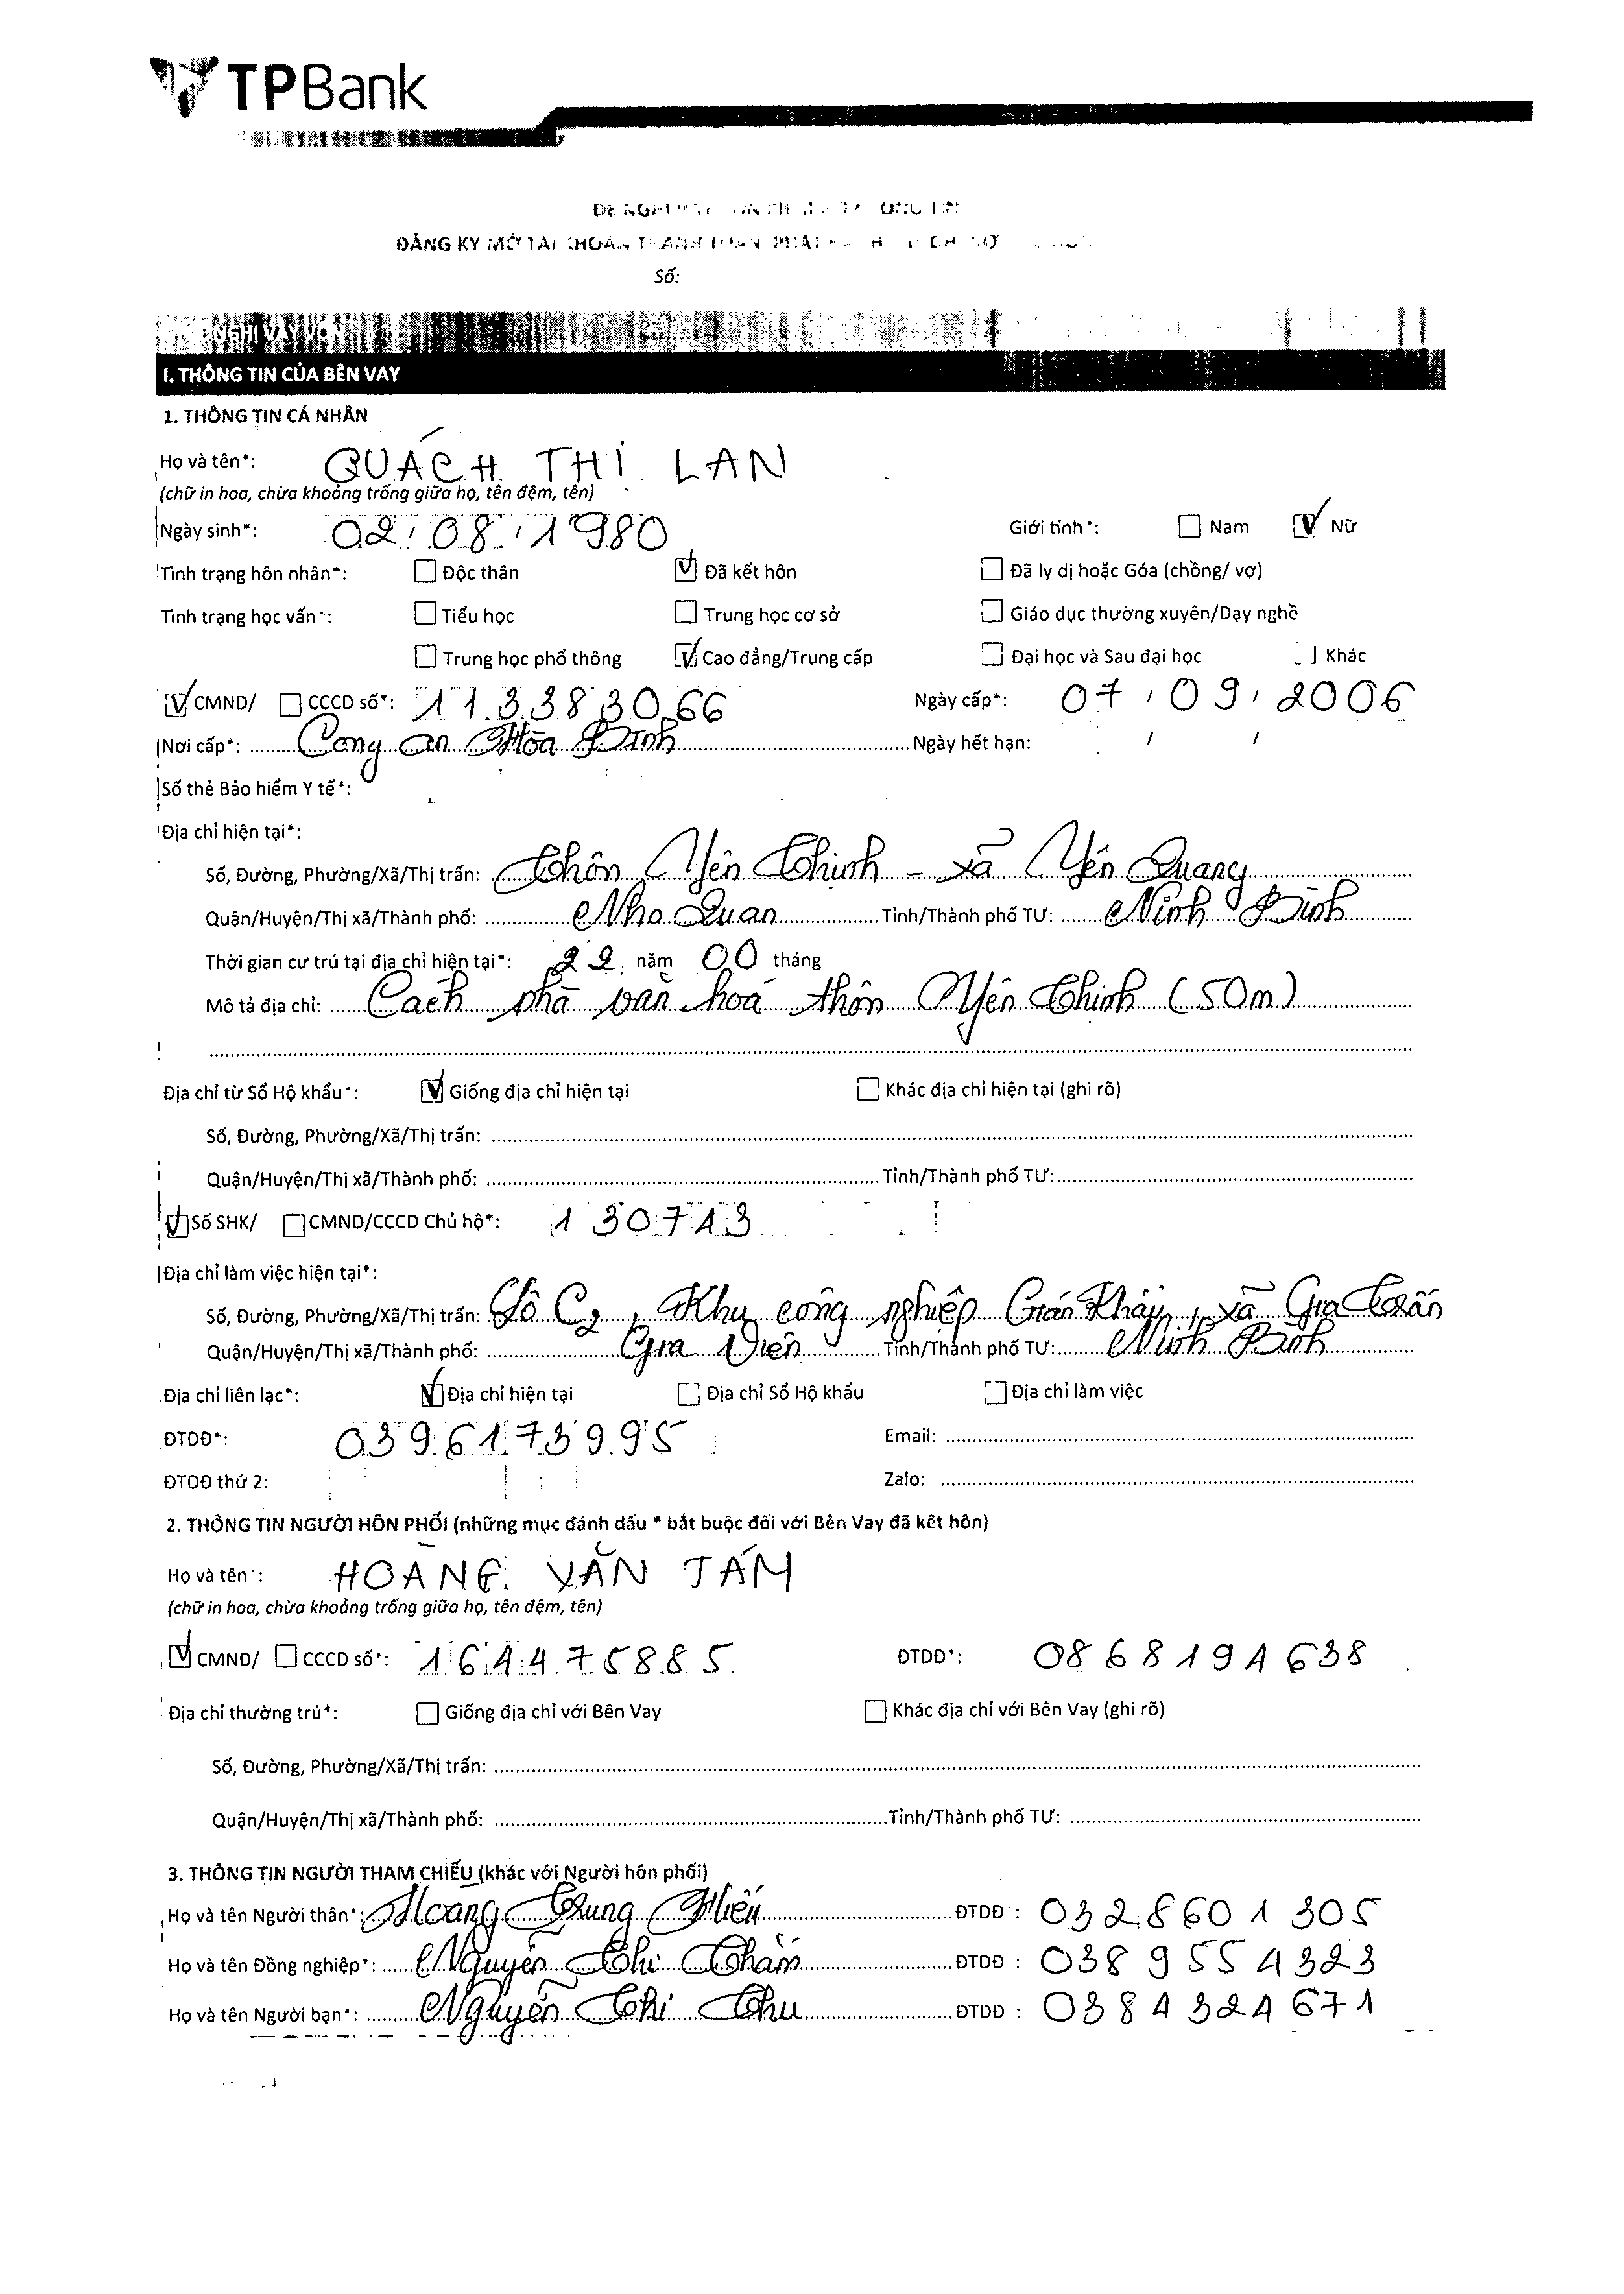 TPBank
ĐĂNG KÝ MỞ TÀI KHOẢN THANH TOÁN
Số:
NGHỊ VAY VỐN
I. THÔNG TIN CỦA BÊN VAY
1. THÔNG TIN CÁ NHÂN
Họ và tên*: QUÁCH THỊ LAN
(chữ in hoa, chừa khoảng trống giữa họ, tên đệm, tên)
Ngày sinh*: 02/08/1980 Giới tính*: Nam Nữ
Tình trạng hôn nhân*: Độc thân Đã kết hôn Đã ly dị hoặc Góa (chồng/ vợ)
Tình trạng học vấn*: Tiểu học Trung học cơ sở Giáo dục thường xuyên/Dạy nghề
Trung học phổ thông Cao đẳng/Trung cấp Đại học và Sau đại học Khác
CMND/ CCCD số*: 113383066 Ngày cấp*: 07/09/2006
Nơi cấp*: Công an Hòa Bình Ngày hết hạn: / /
Số thẻ Bảo hiểm Y tế*:
Địa chỉ hiện tại*:
Số, Đường, Phường/Xã/Thị trấn: Thôn Yên Thịnh - xã Yên Quang
Quận/Huyện/Thị xã/Thành phố: Nho Quan Tỉnh/Thành phố TƯ: Ninh Bình
Thời gian cư trú tại địa chỉ hiện tại*: 22 năm 00 tháng
Mô tả địa chỉ: Cách nhà văn hoá thôn Yên Thịnh (50m)
Địa chỉ từ Sổ Hộ khẩu*: Giống địa chỉ hiện tại Khác địa chỉ hiện tại (ghi rõ)
Số, Đường, Phường/Xã/Thị trấn:
Quận/Huyện/Thị xã/Thành phố: Tỉnh/Thành phố TƯ:
Số SHK/ CMND/CCCD Chủ hộ*: 130713
Địa chỉ làm việc hiện tại*:
Số, Đường, Phường/Xã/Thị trấn: Lô C2, Khu công nghiệp Gián Khẩu, xã Gia Trấn
Quận/Huyện/Thị xã/Thành phố: Gia Viễn Tỉnh/Thành phố TƯ: Ninh Bình
Địa chỉ liên lạc*: Địa chỉ hiện tại Địa chỉ Sổ Hộ khẩu Địa chỉ làm việc
ĐTDĐ*: 0396173995 Email:
ĐTDĐ thứ 2: Zalo:
2. THÔNG TIN NGƯỜI HÔN PHỐI (những mục đánh dấu * bắt buộc đối với Bên Vay đã kết hôn)
Họ và tên*: HOÀNG VĂN TÁM
(chữ in hoa, chừa khoảng trống giữa họ, tên đệm, tên)
CMND/ CCCD số*: 164475885 ĐTDĐ*: 0868194638
Địa chỉ thường trú*: Giống địa chỉ với Bên Vay Khác địa chỉ với Bên Vay (ghi rõ)
Số, Đường, Phường/Xã/Thị trấn:
Quận/Huyện/Thị xã/Thành phố: Tỉnh/Thành phố TƯ:
3. THÔNG TIN NGƯỜI THAM CHIẾU (khác với Người hôn phối)
Họ và tên Người thân*: Hoàng Trung Hiếu ĐTDĐ : 0328601305
Họ và tên Đồng nghiệp*: Nguyễn Thị Thắm ĐTDĐ : 0389554323
Họ và tên Người bạn*: Nguyễn Thị Thu ĐTDĐ : 0384324671